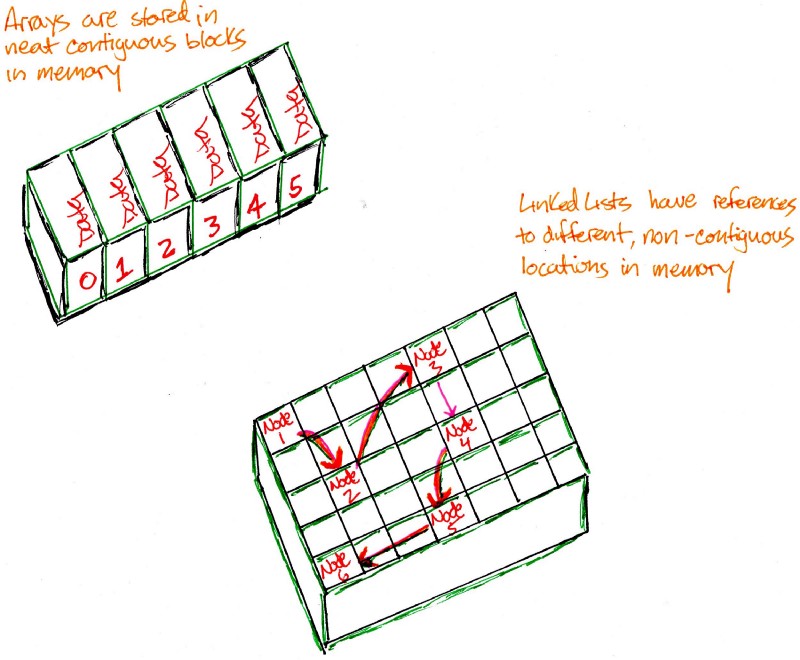 Arrays are stored in
neat contiguous blocks
in memory
Data
Data
Data
Data
Data
Data
0
1
2
3
4
5
Linked Lists have references
to different, non-contiguous
locations in memory
Node
1
Node
2
Node
3
Node
4
Node
5
Node
6